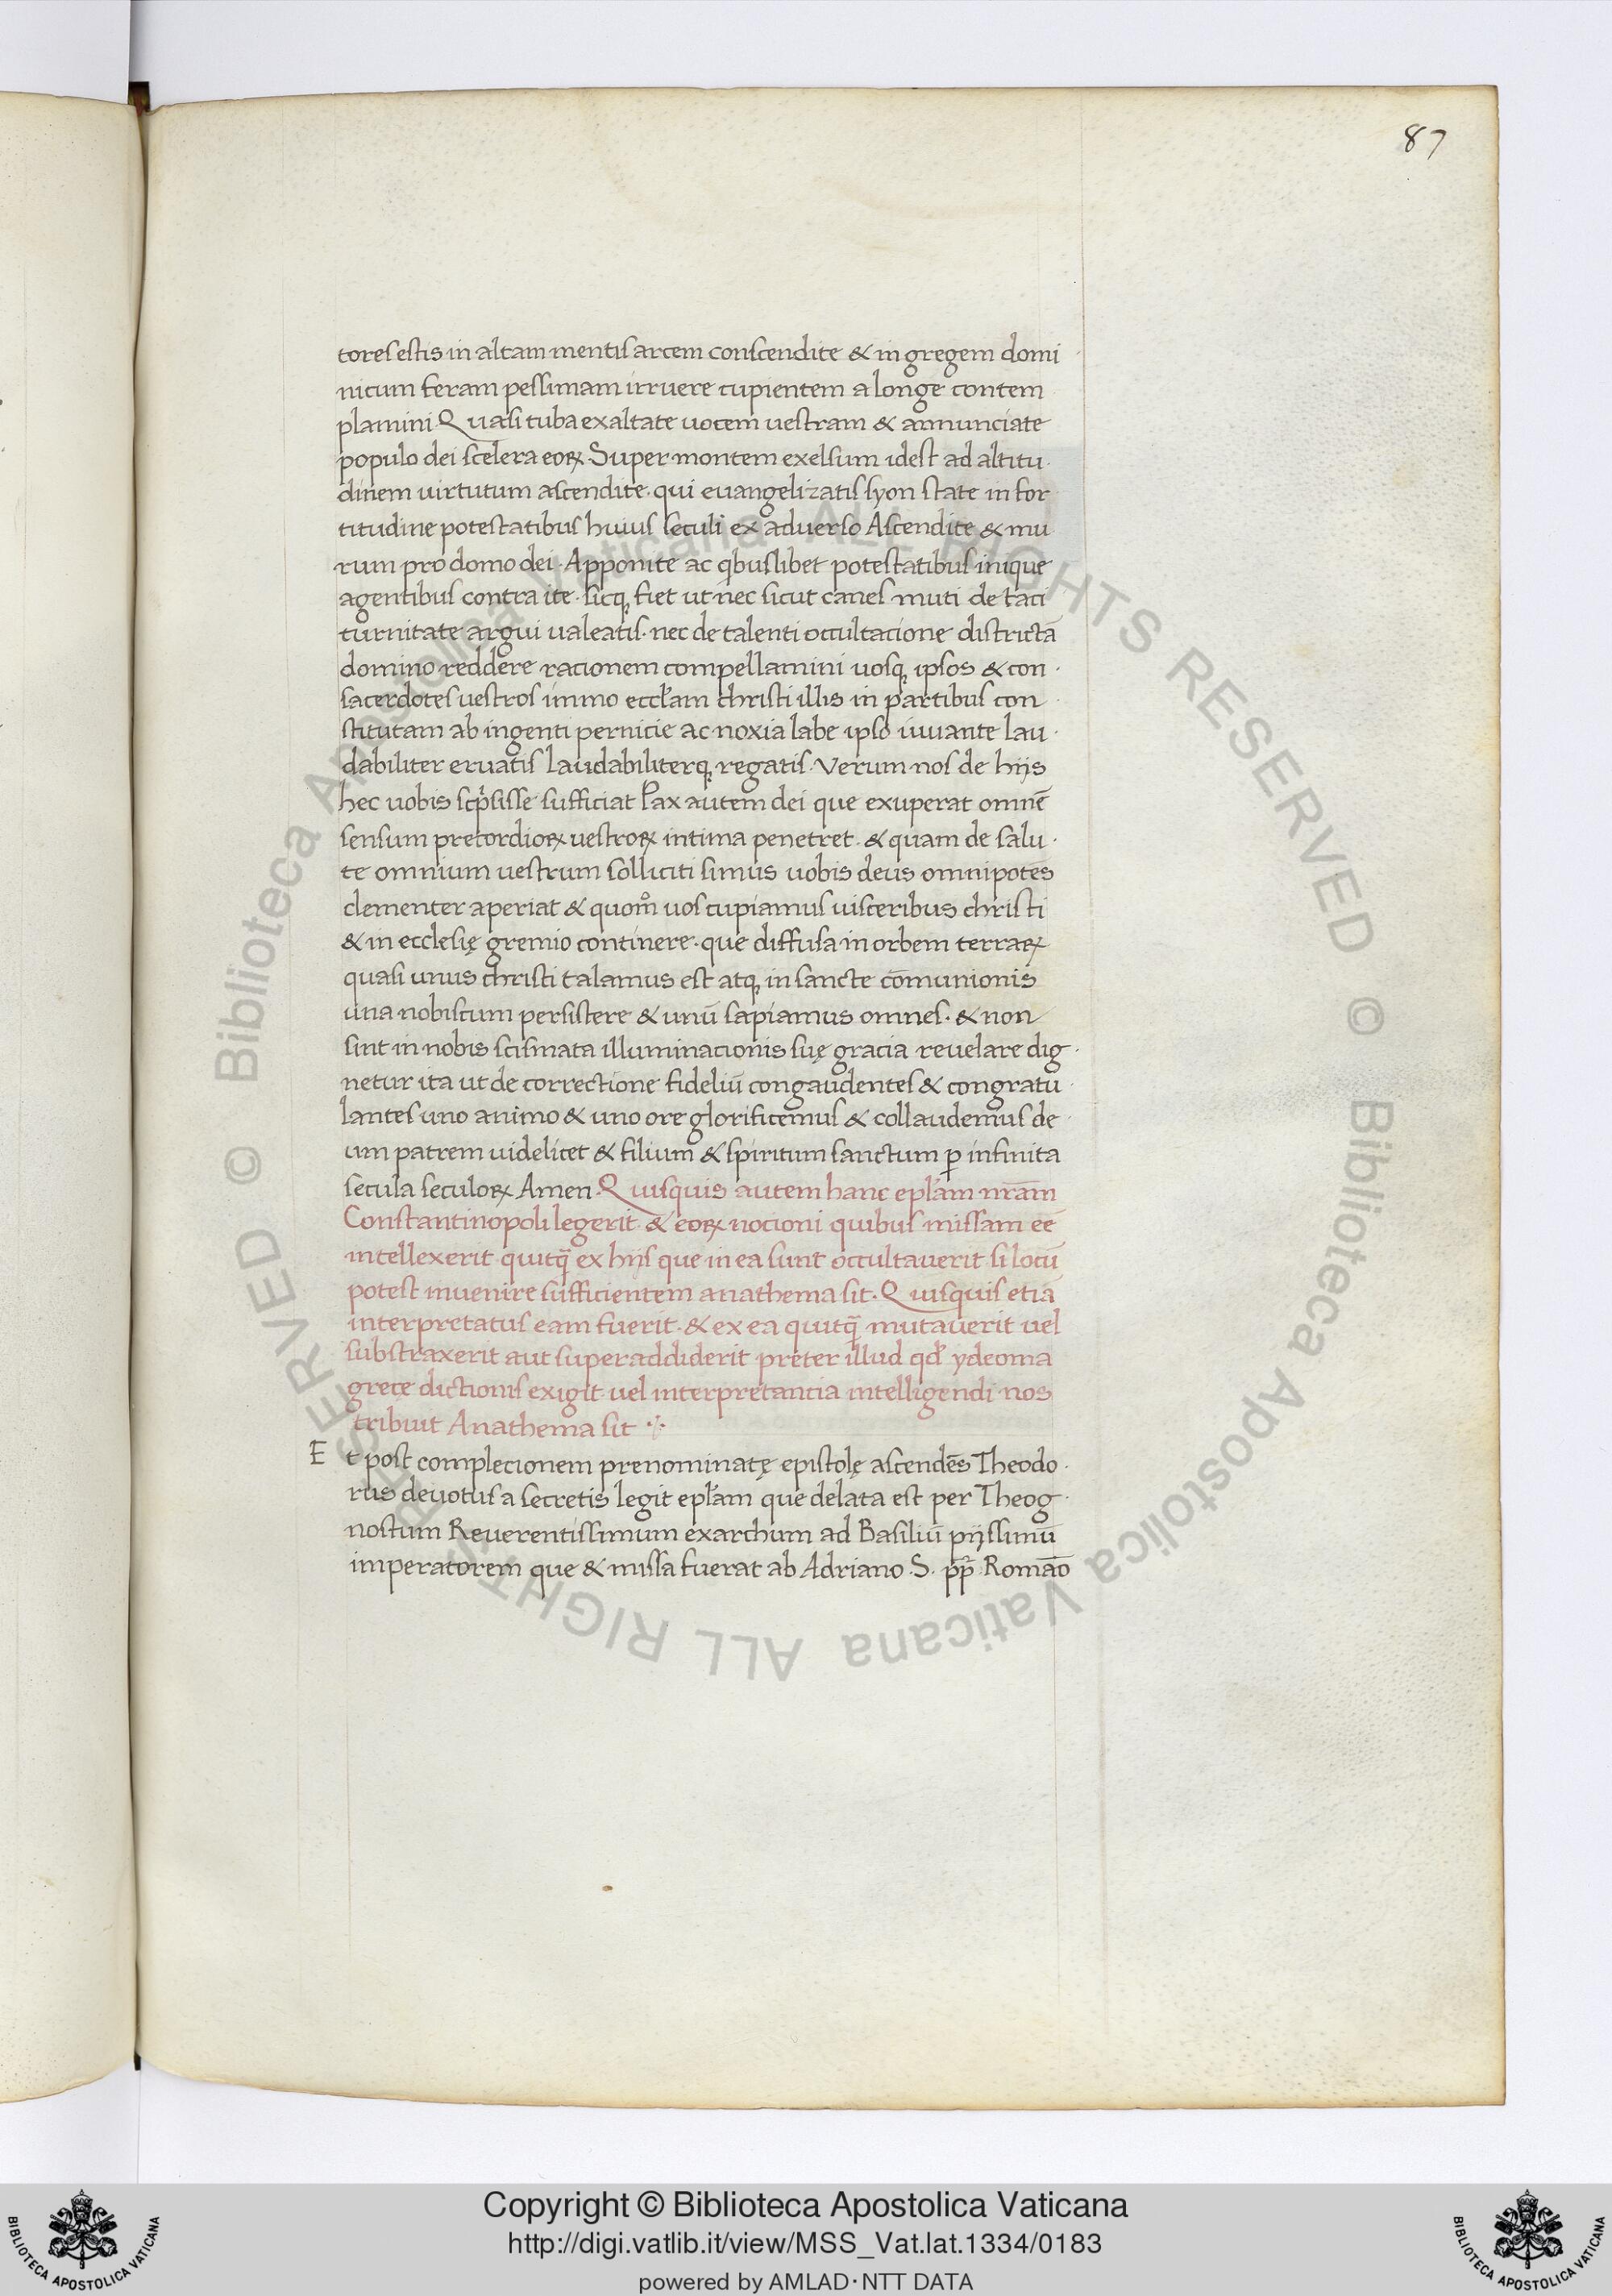 87
tores estis in altam mentis arcem conscendite & in gregem domi
nicum feram pessimam irruere cupientem a longe contem
plamini. Quasi tuba exaltate uocem uestram & annunciate
populo dei scelera eoꝝ. Super montem exelsum idest ad altitu-
dinem uirtutum ascendite. qui euangelizatis syon state in for
titudine potestatibus huius seculi ex aduerso Ascendite & mu
rum pro domo dei. Apponite ac qͥbuslibet potestatibus inique
agentibus contra ite. sicqꝫ fiet ut nec sicut canes muti de taci
turnitate argui ualeatis. nec de talenti occultacione districtā
domino reddere racionem compellamini uosqꝫ ipsos & con-
sacerdotes uestros immo eccl̄am christi illis in partibus con
stitutam ab ingenti pernicie ac noxia labe ipso iuuante lau-
dabiliter eruatis laudabiliterqꝫ regatis. Verum nos de hijs
hec uobis scpͥsisse sufficiat Pax autem dei que exuperat omnē
sensum precordioꝝ uestroꝝ intima penetret. & quam de salu-
te omnium uestrum solliciti simus uobis deus omnipotēs
clementer aperiat & quom̊ uos cupiamus uisceribus christi
& in ecclesię gremio continere. que diffusa in orbem terraꝝ
quasi unus christi talamus est atqꝫ in sancte cōmunionis
una nobiscum persistere & unū sapiamus omnes. & non
sint in nobis scismata illuminacionis suę gracia reuelare dig-
netur ita ut de correctione fideliū congaudentes & congratu-
lantes uno animo & uno ore glorificemus & collaudemus de-
um patrem uidelicet & filium & spiritum sanctum ꝑ infinita
secula seculoꝝ Amen. Quisquis autem hanc epl̄am nr̄am
Constantinopoli legerit. & eoꝝ nocioni quibus missam eē
intellexerit quicq̄ ex hijs que in ea sunt occultauerit si locū
potest inuenire sufficientem anathema sit. Quisquis etiā
interpretatus eam fuerit. & ex ea quicq̄ mutauerit uel
substraxerit aut superaddiderit preter illud qd̛ ydeoma
grece dictionis exigit uel interpretantia intelligendi nos
tribuit Anathema sit
Et post complecionem prenominatę epistolę ascendēs Theodo-
rus deuotus a secretis legit epl̄am que delata est per Theog-
nostum Reuerentissimum exarchum ad Basiliū pijssimū
imperatorem que & missa fuerat ab Adriano .S. pp̄ Romāo
© Biblioteca Apostolica Vaticana ALL RIGHTS RESERVED
© Biblioteca Apostolica Vaticana ALL RIGHTS RESERVED
BIBLIOTECA APOSTOLICA VATICANA
Copyright © Biblioteca Apostolica Vaticana
http://digi.vatlib.it/view/MSS_Vat.lat.1334/0183
powered by AMLAD·NTT DATA
BIBLIOTECA APOSTOLICA VATICANA